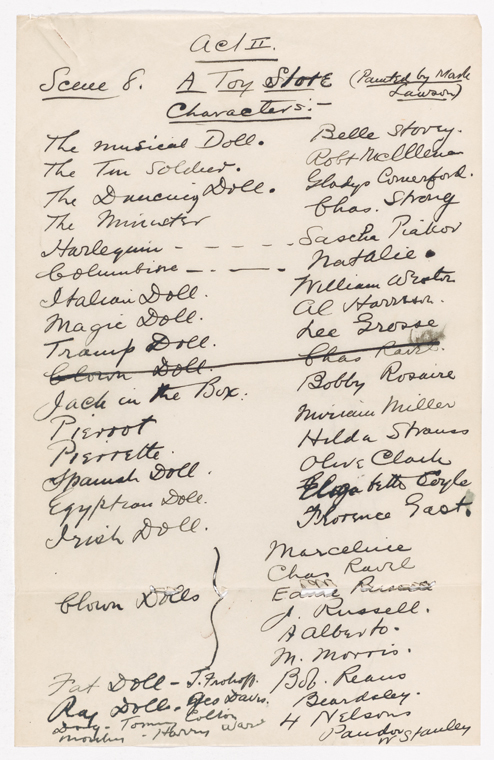 Act II.
Scene 8. A Toy Store (Painted by Mark Lawson)
Characters:-
The Musical Doll. Belle Storey.
The Tin Soldier. Robt McClellan
The Dancing Doll. Gladys Comerford.
The Minister Chas. Strong
Harlequin - - - - - Sascha Piatov
Columbine - - - - Natalie.
Italian Doll. William Weston
Magic Doll. Al Harrison.
Tramp Doll. Lee Grosse
Clown Doll. Chas Ravel.
Jack in the Box. Bobby Rosaire
Pierrot Miriam Miller
Pierrette. Hilda Strauss
Spanish Doll. Olive Clark
Egyptian Doll. Elizabeth Coyle
Irish Doll. Florence Gast.
Marceline
Chas Ravel
Clown Dolls
J. Russell.
A Alberto.
M. Morris.
Fat Doll - J. Frohoff. Bob. Reans
Rag Dolls. Geo Davis. Beardsley.
Dog - Tommy Colton 4 Nelsons
Monkey - Harry Ward Pandor
W Stanley